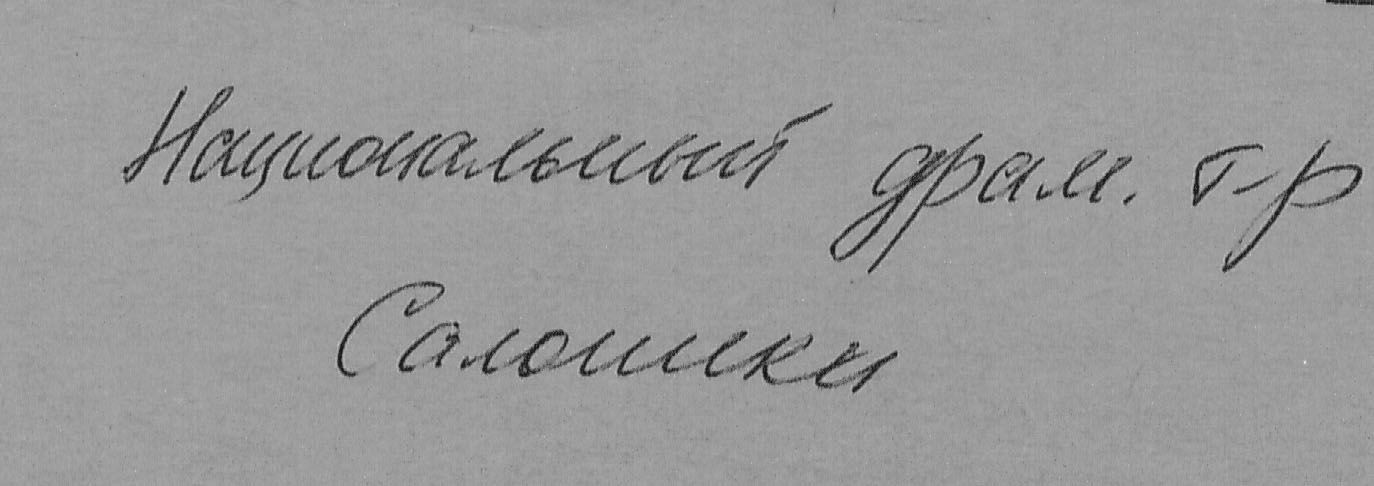 Национальный драм. т-р
Салоники